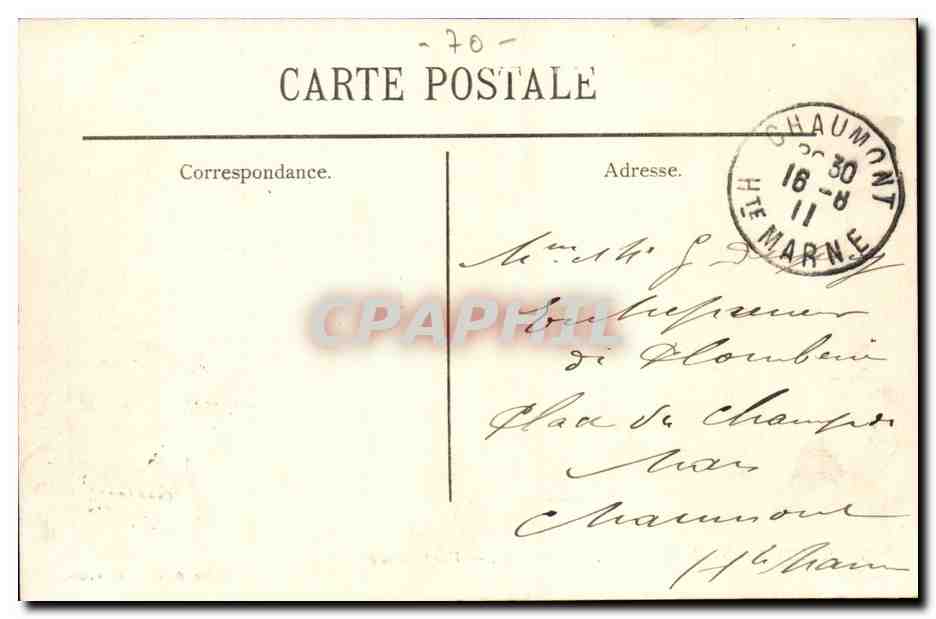 - 70 -
CARTE POSTALE
Correspondance.
Adresse.
CHAUMONT
30
16 - 8
11
Hte MARNE
CPAPHIL
Mme G
Entrepreneur
de Plomberie
Place du Champ de
Mars
Chaumont
Hte Marne